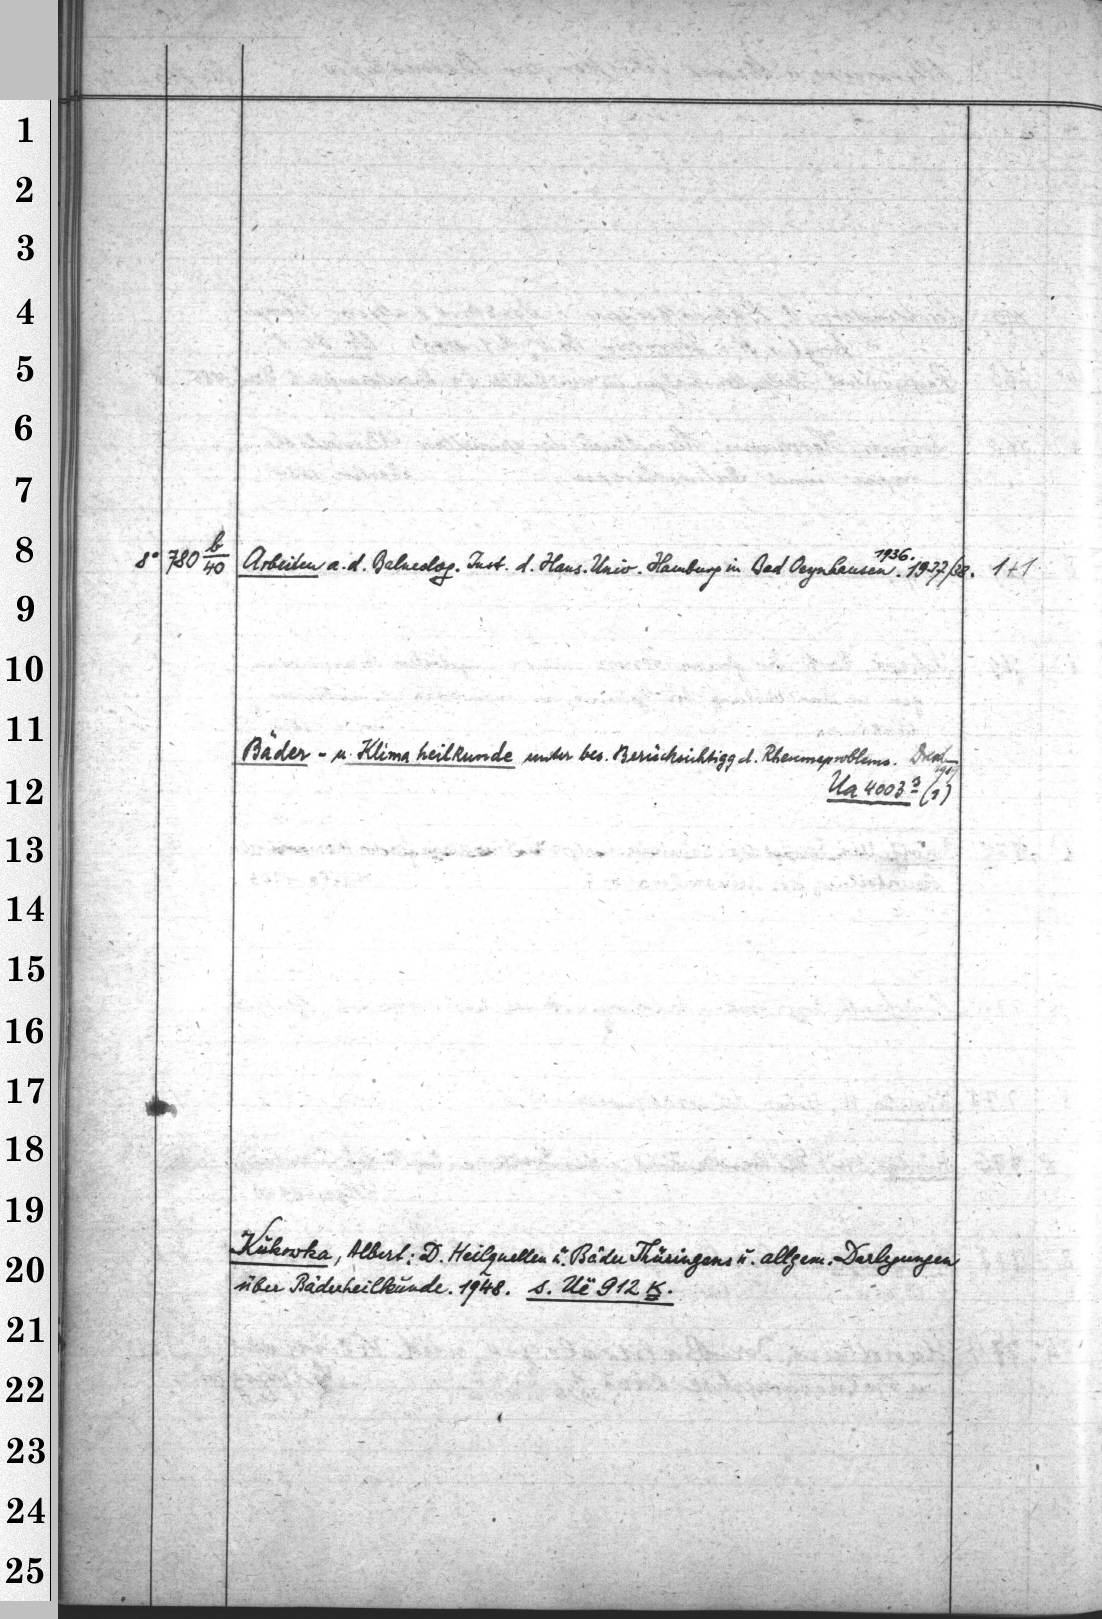 1
2
3
4
5
6
7
8
9
10
11
12
13
14
15
16
17
18
19
20
21
22
23
24
25
1936.
8° 780 b/40 Arbeiten a. d. Balneolog. Inst. d. Hans. Univ. Hamburg in Bad Oeynhausen. 1937/38. 1+1
Bäder - u. Klimaheilkunde unter bes. Berücksichtigg d. Rheumaproblems.
Ua 4003 (1)
Kukowka, Albert: D. Heilquellen u. Bäder Thüringens u. allgem. Darlegungen
über Bäderheilkunde. 1948. s. Ue 912 K.